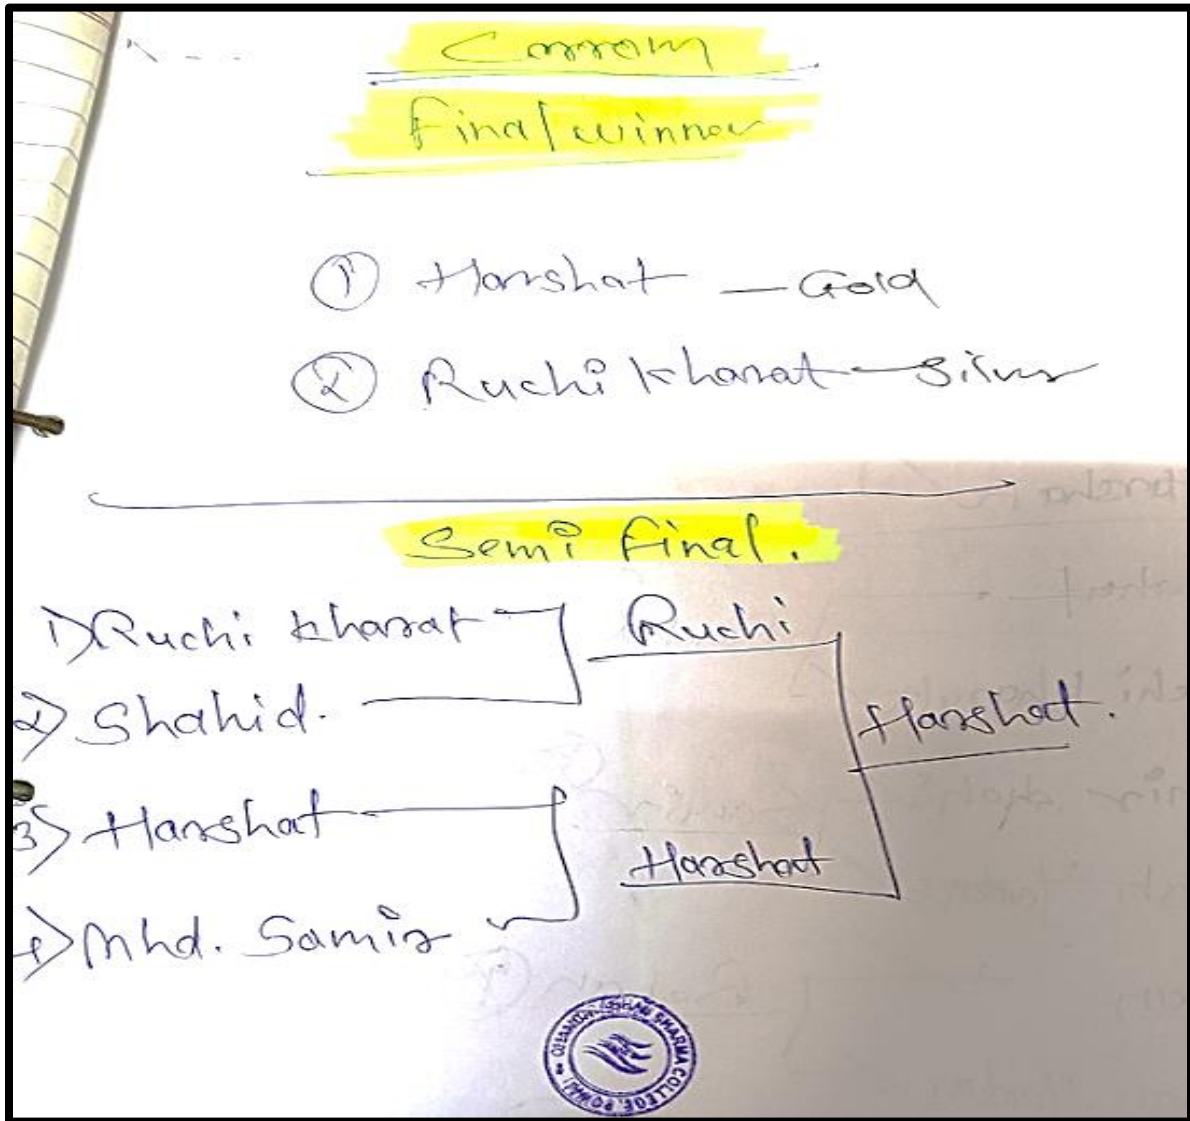 Carrom
Final winner
① Harshat – Gold
② Ruchi Kharat – Silver
Semi Final.
1) Ruchi Kharat
Ruchi
2) Shahid.
Harshat.
3) Harshat
Harshat
4) Mhd. Samir
SHARMA COLLEGE, POWAI